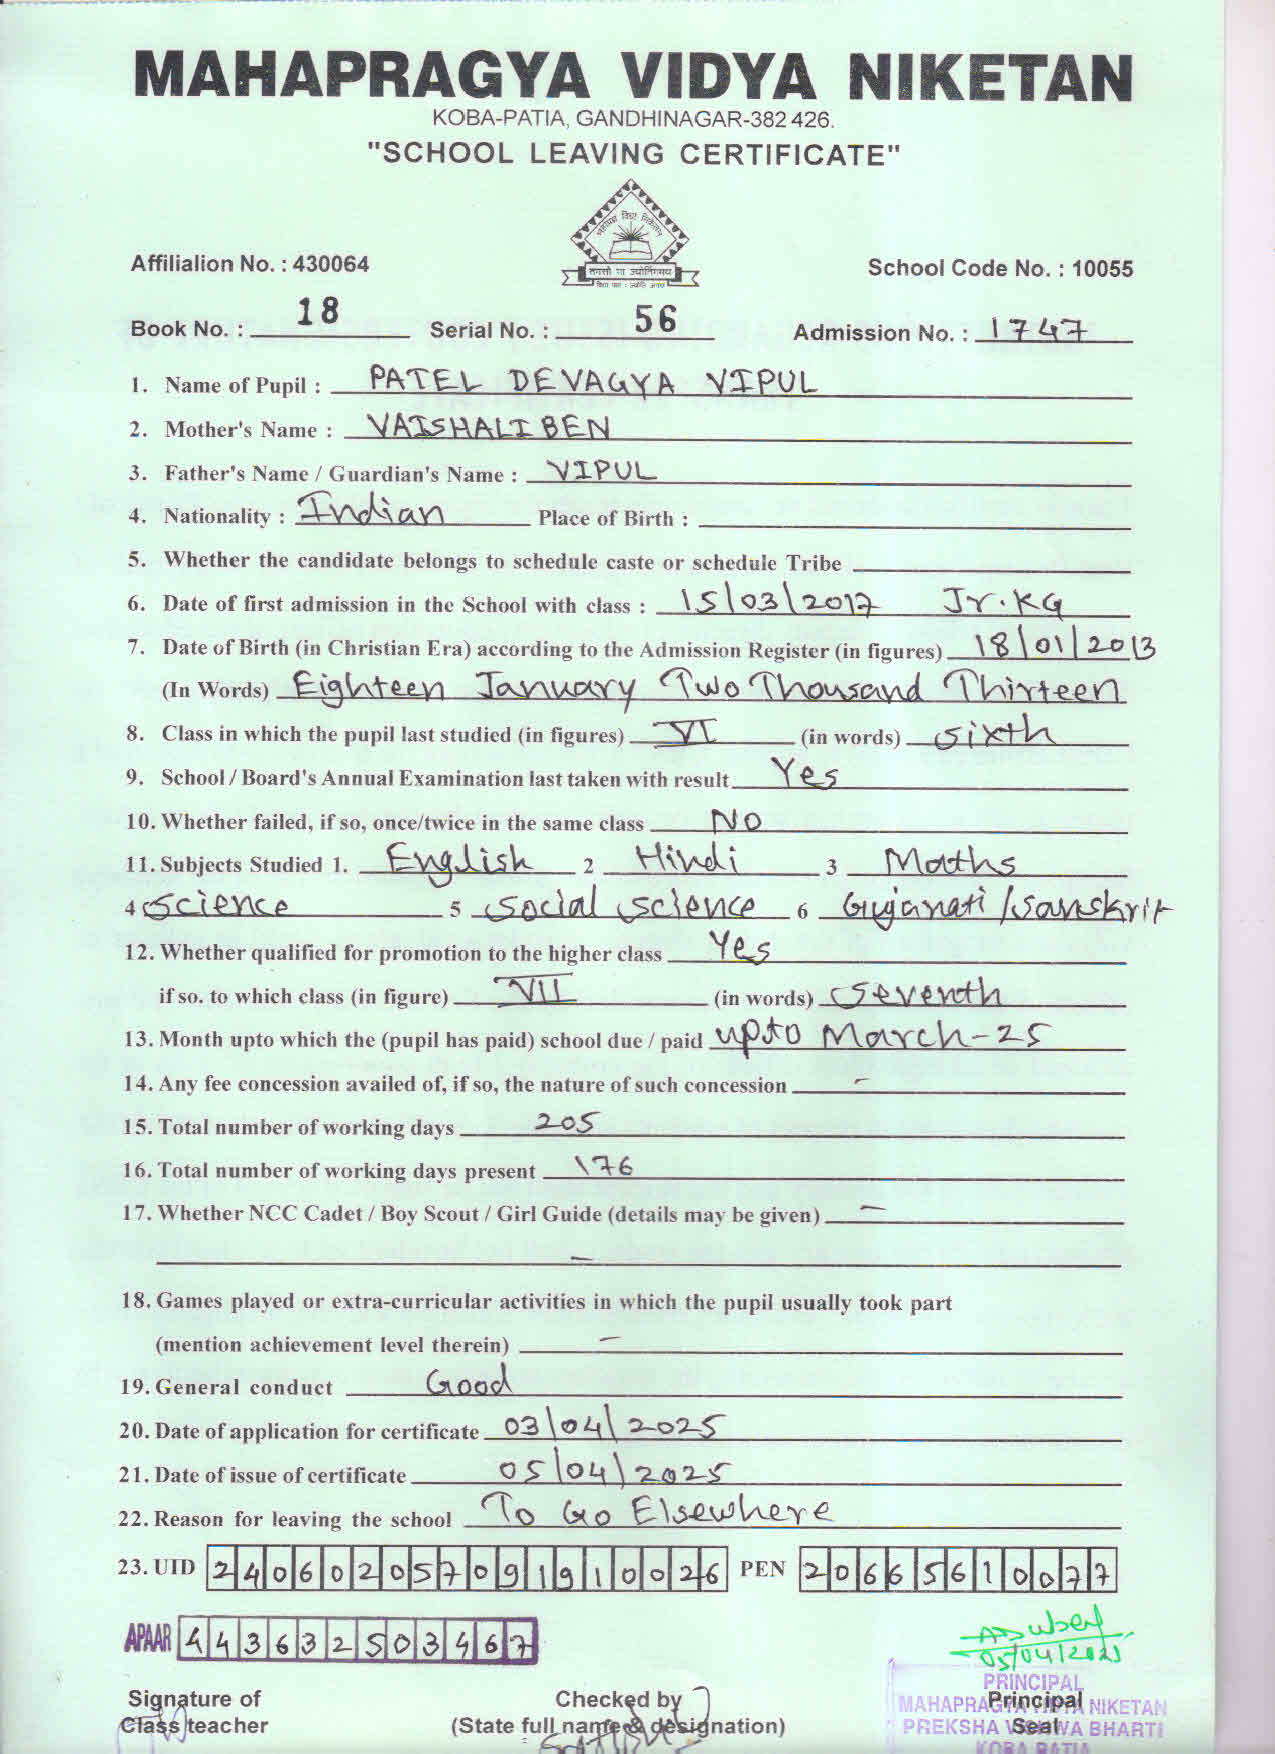 MAHAPRAGYA VIDYA NIKETAN
KOBA-PATIA, GANDHINAGAR-382 426.
"SCHOOL LEAVING CERTIFICATE"
महाप्रज्ञ विद्या निकेतन
तमसो मा ज्योतिर्गमय
Affilialion No. : 430064 School Code No. : 10055
Book No. : 18 Serial No. : 56 Admission No. : 1747
1. Name of Pupil : PATEL DEVAGYA VIPUL
2. Mother's Name : VAISHALIBEN
3. Father's Name / Guardian's Name : VIPUL
4. Nationality : Indian Place of Birth :
5. Whether the candidate belongs to schedule caste or schedule Tribe
6. Date of first admission in the School with class : 15/03/2017 Jr.KG
7. Date of Birth (in Christian Era) according to the Admission Register (in figures) 18/01/2013
(In Words) Eighteen January Two Thousand Thirteen
8. Class in which the pupil last studied (in figures) VI (in words) sixth
9. School / Board's Annual Examination last taken with result Yes
10. Whether failed, if so, once/twice in the same class NO
11. Subjects Studied 1. English 2 Hindi 3 Maths
4 Science 5 Social Science 6 Gujarati/Sanskrit
12. Whether qualified for promotion to the higher class Yes
if so. to which class (in figure) VII (in words) Seventh
13. Month upto which the (pupil has paid) school due / paid upto March-25
14. Any fee concession availed of, if so, the nature of such concession -
15. Total number of working days 205
16. Total number of working days present 176
17. Whether NCC Cadet / Boy Scout / Girl Guide (details may be given) -
-
18. Games played or extra-curricular activities in which the pupil usually took part
(mention achievement level therein) -
19. General conduct Good
20. Date of application for certificate 03/04/2025
21. Date of issue of certificate 05/04/2025
22. Reason for leaving the school To Go Elsewhere
23. UID 240602057091910026 PEN 20665610077
APAAR 443632503467
05/04/2025
PRINCIPAL
Signature of Checked by Principal
MAHAPRAGYA VIDYA NIKETAN
Class teacher (State full name & designation) Seal
PREKSHA VISHWA BHARTI
KOBA PATIA